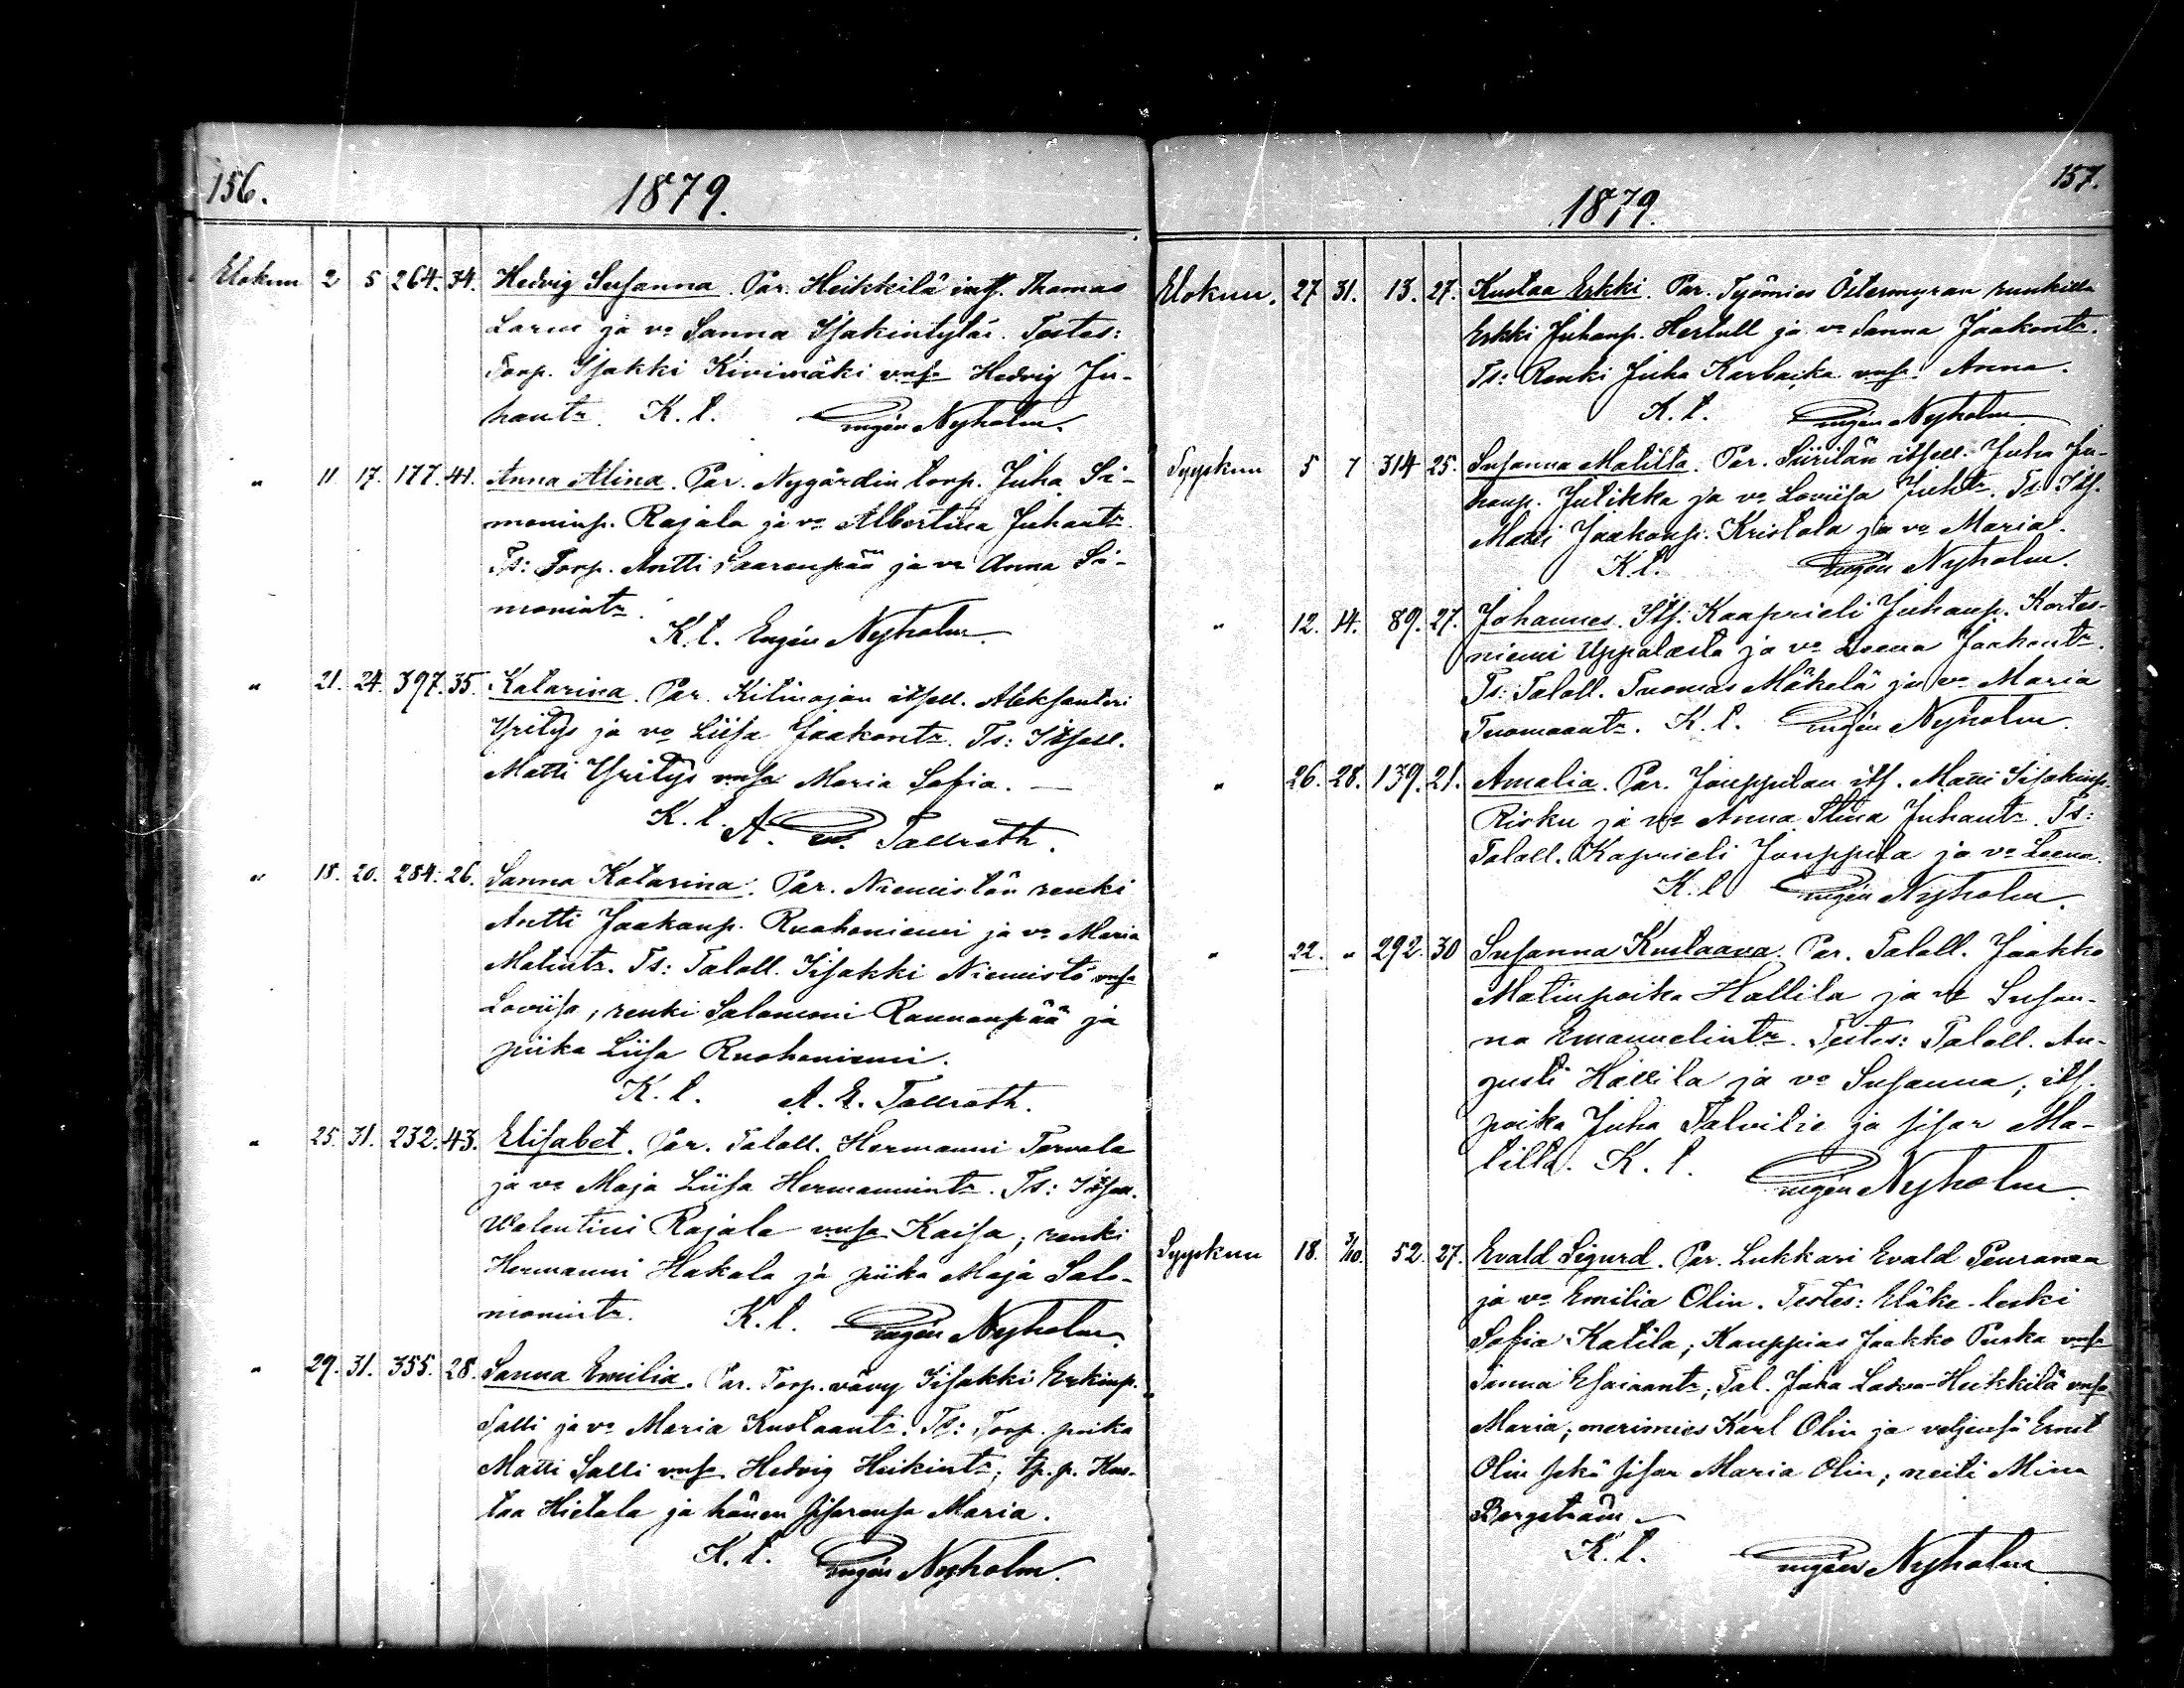 156.
1879.
Elokuu 2 5 264. 34. Hedvig Susanna. Par. Heikkilä its. Thomas
Larus ja vo Sanna Isakintytär. Testes:
Torp. Isakki Kivimäki vmsa Hedvig Ju-
hantr. K. l. Eugén Nyholm.
" 11. 17. 177. 41. Anna Alina. Par. Nygårdin torp. Juha Si-
moninp. Rajala ja vo Albertina Juhantr.
Ts: Torp. Antti Saarenpää ja vo Anna Si-
monintr.
K. l. Eugén Nyholm.
" 21. 24. 397. 35. Katarina. Par. Kitinojan itsell. Aleksanteri
Yritys ja vo Liisa Jaakontr. Ts: Itsell.
Matti Yritys vmsa Maria Sofia. —
K. l. A. E. Tallroth.
" 18. 20. 284. 26. Sanna Katarina. Par. Niemistön renki
Antti Jaakonp. Ruohoniemi ja vo Maria
Matintr. Ts: Taloll. Iisakki Niemistö vmsa
Loviisa, renki Salomoni Rannanpää ja
piika Liisa Ruohoniemi.
K. l. A. E. Tallroth.
" 25. 31. 232. 43. Elisabet. Par. Taloll. Hermanni Torvala
ja vo Maja Liisa Hermannintr. Ts: Itsell.
Walentini Rajala vmsa Kaisa; renki
Hermanni Hakala ja piika Maja Salo-
monintr. K. l. Eugén Nyholm.
" 29. 31. 355. 28. Sanna Emilia. Par. Torp. vävy Iisakki Erkinp.
Salli ja vo Maria Kustaantr. Ts: Torp. poika
Matti Salli vmsa Hedvig Heikintr; tp. p. Kus-
taa Hietala ja hänen sisarensa Maria.
K. l. Eugén Nyholm.
157.
1879.
Elokuu. 27 31. 13. 27. Kustaa Erkki. Par. Työmies Östermyran ruukilla
Erkki Juhanp. Hertull ja vo Sanna Jaakontr.
Ts: Renki Juha Karbacka vmsa Anna.
K. l. Eugén Nyholm
Syyskuu 5 7 314 25. Susanna Matilta. Par. Siirilän itsell. Juha Ju-
hanp. Julikka ja vo Loviisa Juhtr. Ts: Its.
Matti Jaakonp. Kristola ja vo Maria.
K. l. Eugén Nyholm.
" 12. 14. 89. 27. Johannes. Its. Kaaprieli Juhanp. Kortes-
niemi Uppalasta ja vo Leena Jaakontr.
Ts: Taloll. Tuomas Mäkelä ja vo Maria
Tuomaantr. K. l. Eugén Nyholm.
" 26. 28. 139. 21. Amalia. Par. Jouppilan its. Matti Iisakinp.
Risku ja vo Anna Stina Juhantr. Ts:
Taloll. Kaprieli Jouppila ja vo Leena.
K. l. Eugén Nyholm.
" 22. " 292. 30 Susanna Kustaava. Par. Taloll. Jaakko
Matinpoika Hallila ja vo Susan-
na Emanuelintr. Testes: Taloll. Au-
gusti Hallila ja vo Susanna; its.
poika Juha Talvitie ja sisar Ma-
tilta. K. l.
Eugén Nyholm.
Syyskuu 18. 3/10. 52. 27. Evald Sigurd. Par. Lukkari Evald Peuranen
ja vo Emilia Olin. Testes: Eläke-leski
Sofia Katila; Kauppias Jaakko Puska vmsa
Sanna Esaiaantr; Tal. Juha Laswa-Heikkilä vmsa
Maria; merimies Karl Olin ja veljensä Ernst
Olin sekä sisar Maria Olin; neiti Mina
Bergström
K. l. Eugén Nyholm